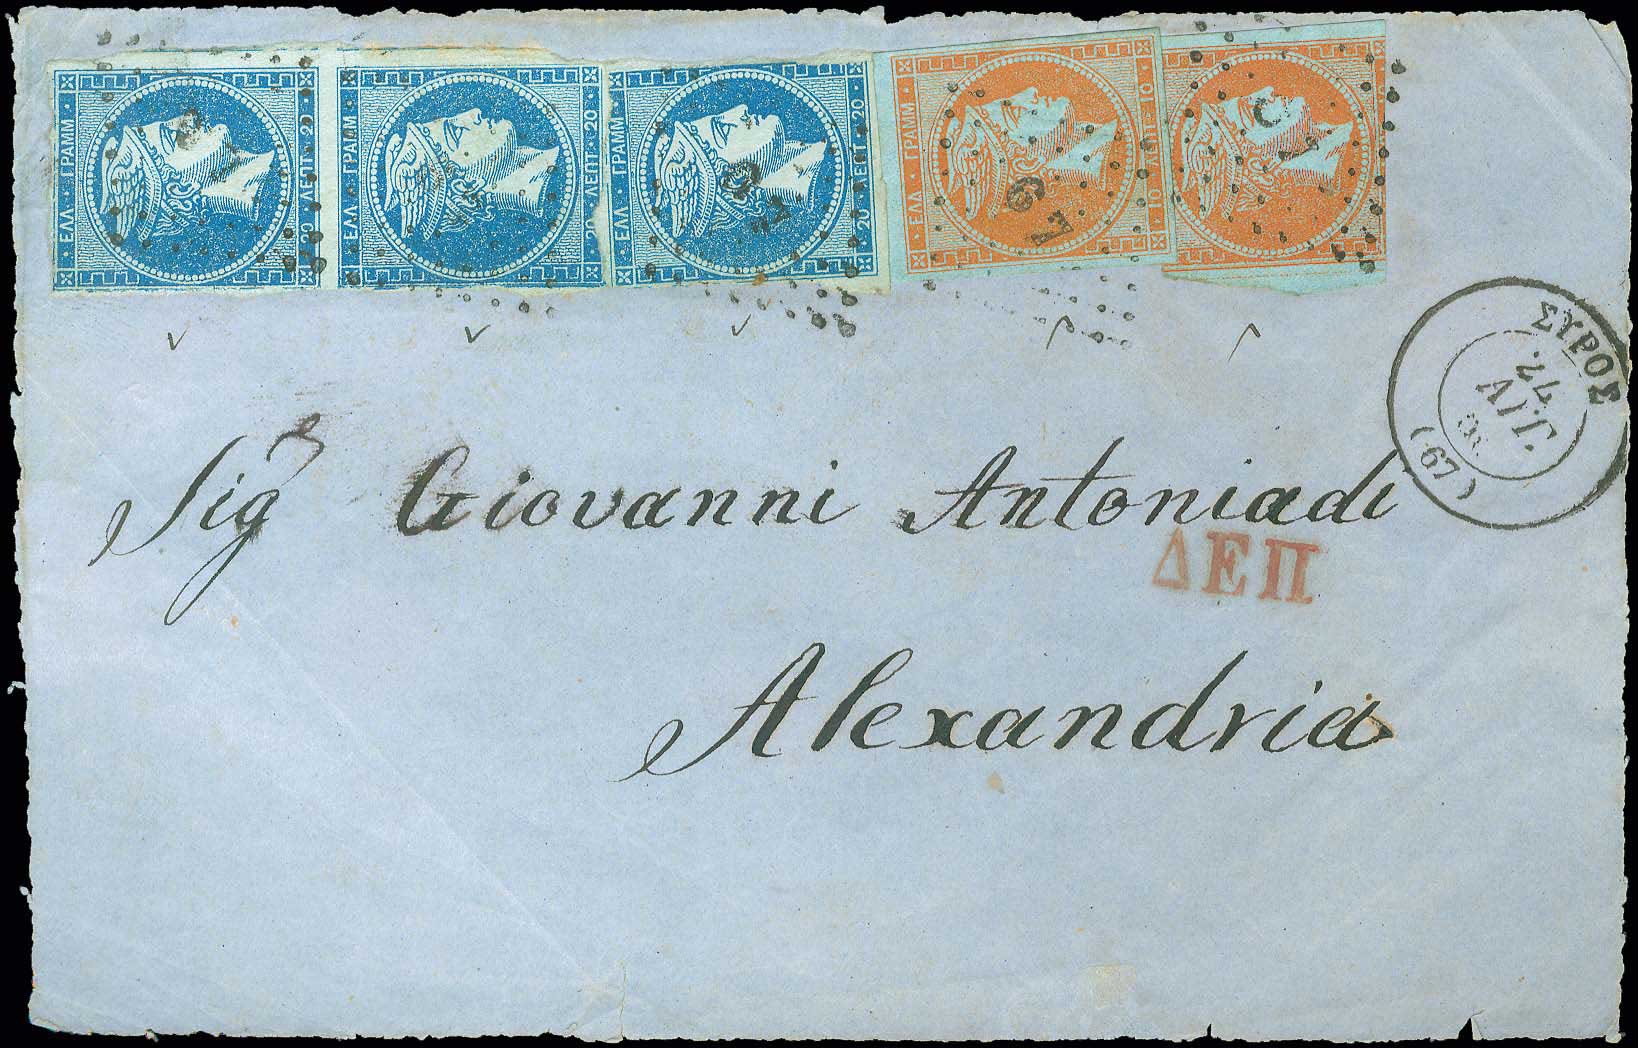 ΕΛΛ · ΓΡΑΜΜ · 20 · ΛΕΠΤ · 20
ΕΛΛ · ΓΡΑΜΜ · 20 · ΛΕΠΤ · 20
ΕΛΛ · ΓΡΑΜΜ · 20 · ΛΕΠΤ · 20
ΕΛΛ · ΓΡΑΜΜ · 10 · ΛΕΠΤ · 10
67
67
ΣΥΡΟΣ
(67)
Sigr Giovanni Antoniadi
ΔΕΠ
Alexandria